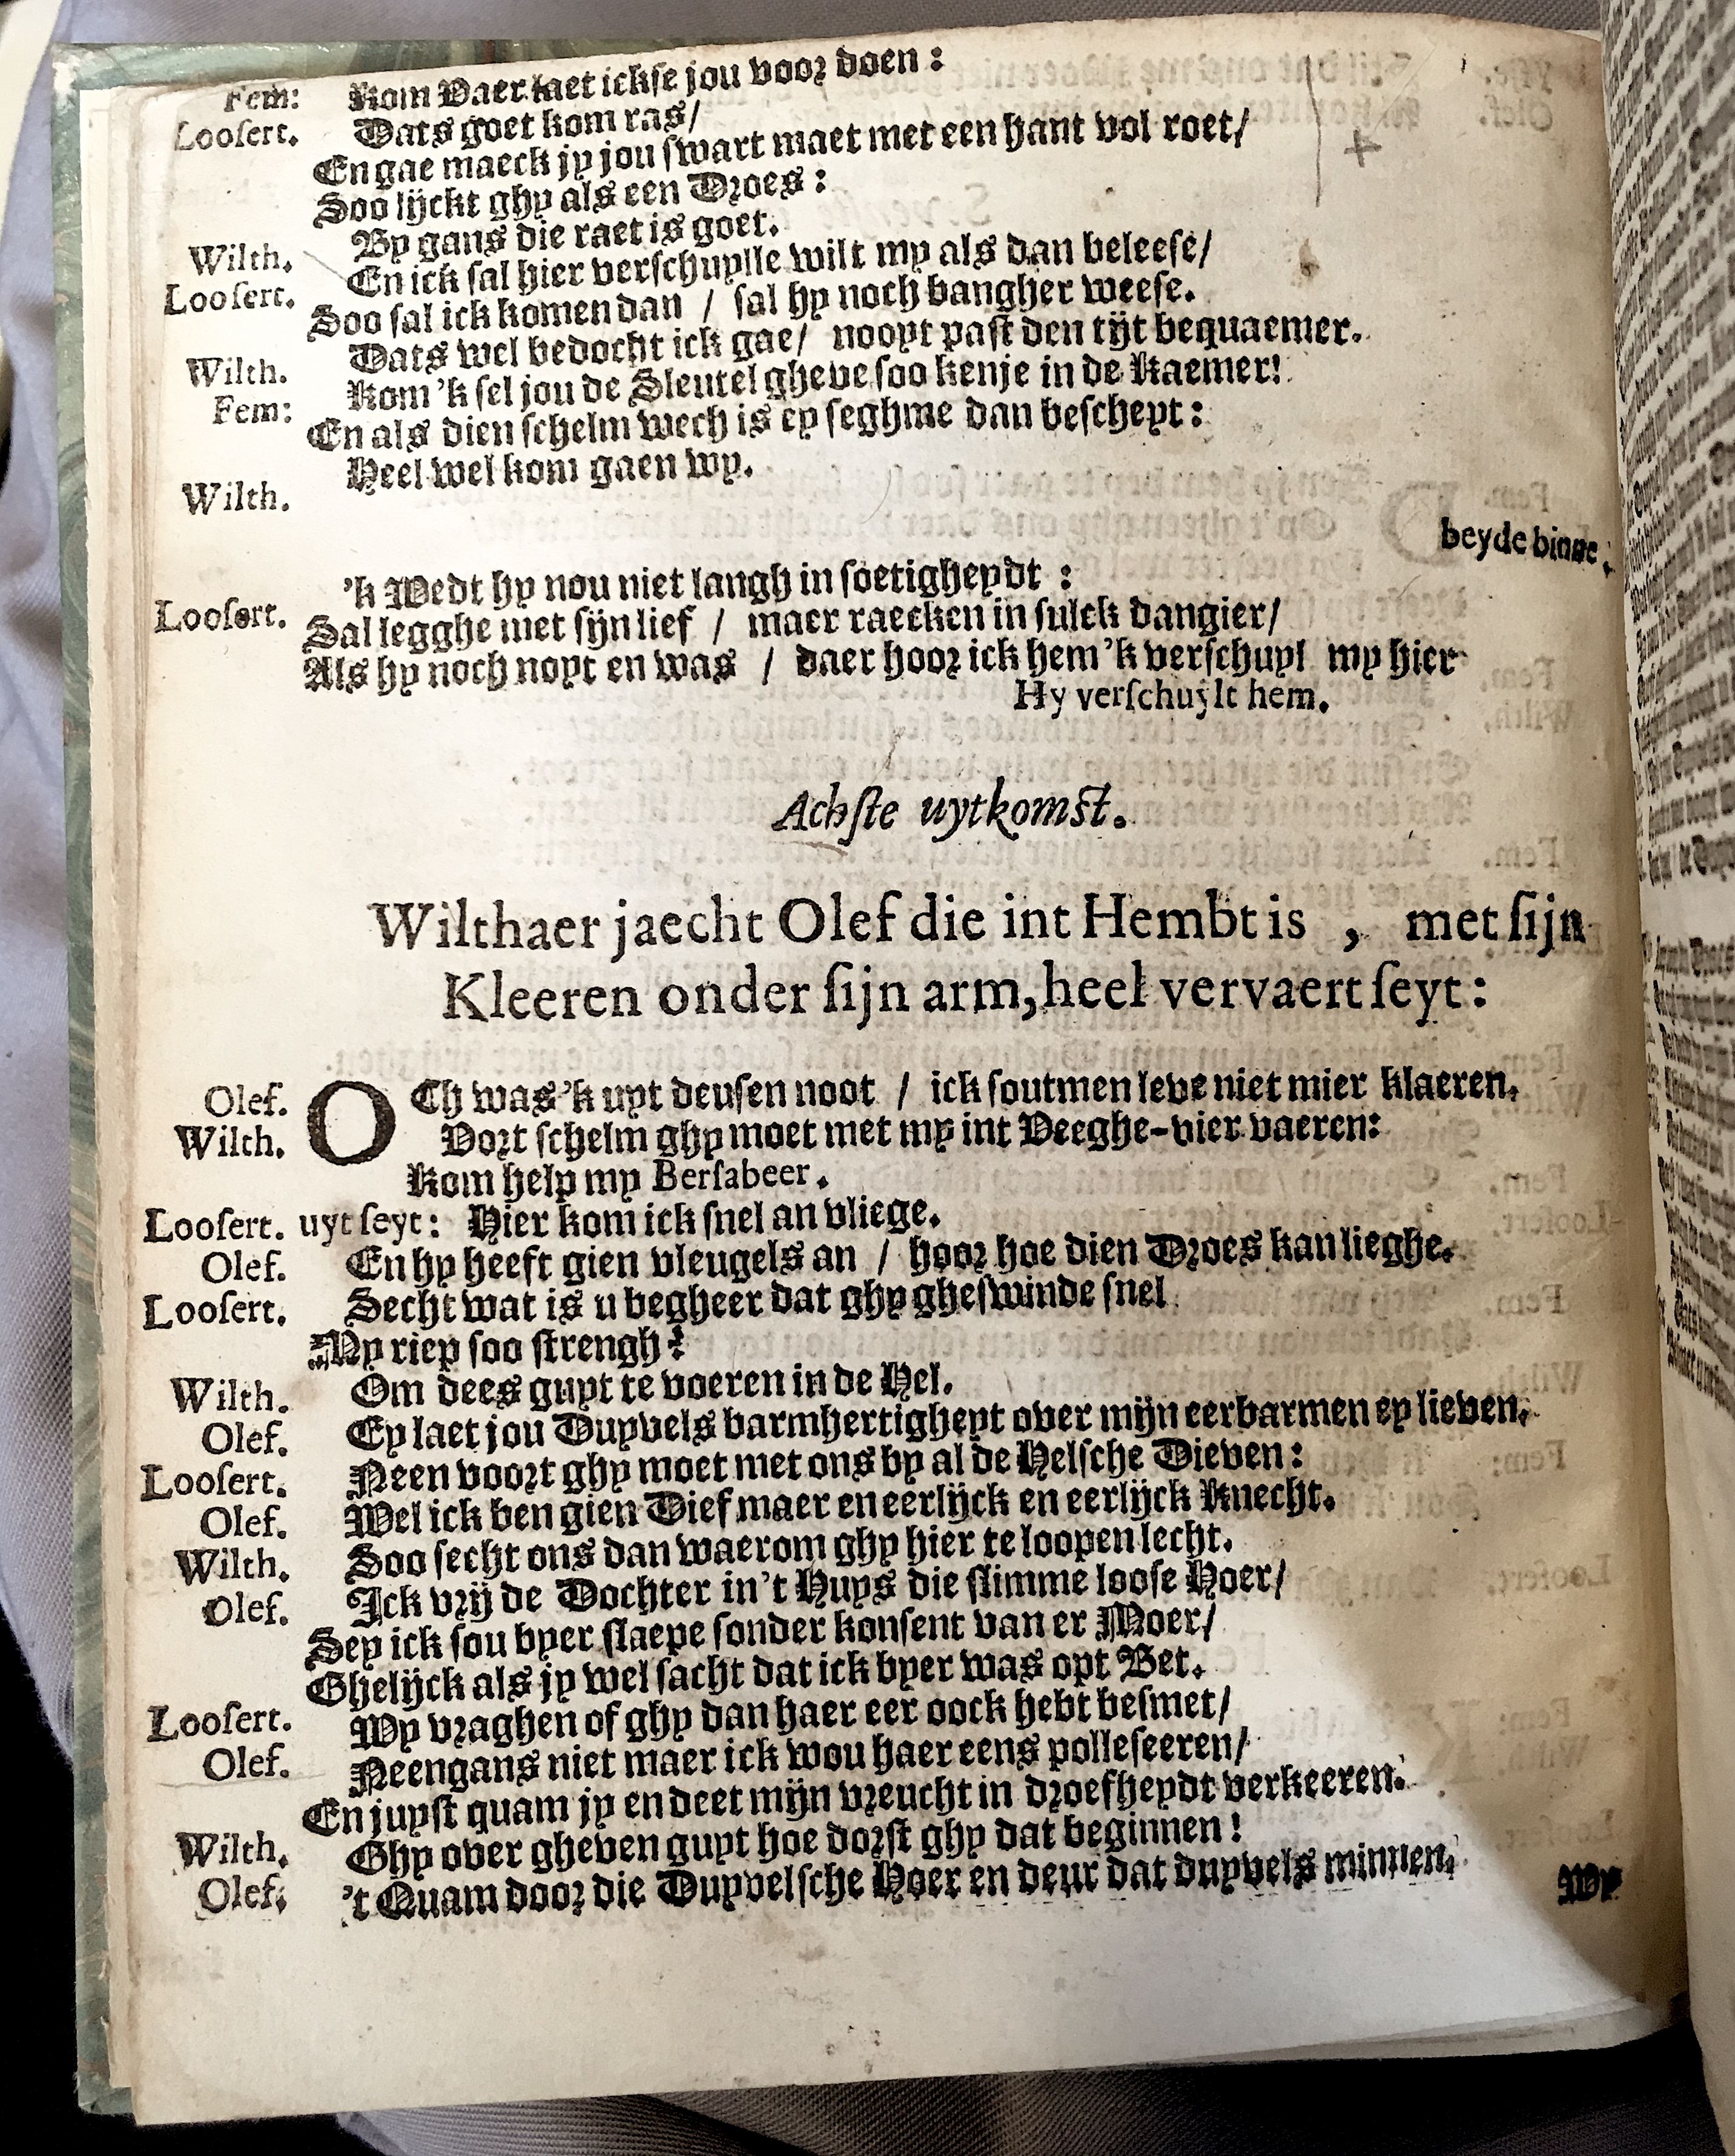 Fem: Kom Vaer laet ickse jou voor doen :
Loosert. Dats goet kom ras/
En gae maeck jy jou swart maet met een hant vol roet/
Soo lijckt ghy als een Droes :
Wilth. By gans die raet is goet.
Loosert. En ick sal hier verschuylle wilt my als dan beleese/
Soo sal ick komen dan / sal hy noch bangher weese.
Wilth. Dats wel bedocht ick gae/ nooyt past den tijt bequaemer.
Fem: Kom 'k sel jou de Sleutel gheve soo kenje in de Kaemer!
En als dien schelm wech is ey seghme dan bescheyt :
Wilth. Heel wel kom gaen wy.
beyde binne.
Loosert. 'k Wedt hy nou niet langh in soetigheydt :
Sal legghe met sijn lief / maer raecken in sulck dangier/
Als hy noch noyt en was / daer hoor ick hem 'k verschuyl my hier
Hy verschuylt hem.
Achste uytkomst.
Wilthaer jaecht Olef die int Hembt is , met sijn
Kleeren onder sijn arm, heel vervaert seyt :
Olef. OCh was 'k uyt deusen noot / ick soutmen leve niet mier klaeren.
Wilth. Vort schelm ghy moet met my int Veeghe-vier vaeren:
Kom help my Bersabeer.
Loosert. uyt seyt : Hier kom ick snel an vliege.
Olef. En hy heeft gien vleugels an / hoor hoe dien Droes kan lieghe.
Loosert. Secht wat is u begheer dat ghy gheswinde snel
My riep soo strengh ?
Wilth. Om dees guyt te voeren in de Hel.
Olef. Ey laet jou Duyvels barmhertigheyt over mijn eerbarmen ey lieven.
Loosert. Neen voort ghy moet met ons by al de Helsche Dieven :
Olef. Wel ick ben gien Dief maer en eerlijck en eerlijck Knecht.
Wilth. Soo secht ons dan waerom ghy hier te loopen lecht.
Olef. Ick vrij de Dochter in 't Huys die slimme loose Hoer/
Sey ick sou byer slaepe sonder konsent van er Moer/
Ghelijck als jy wel sacht dat ick byer was opt Bet.
Loosert. Wy vraghen of ghy dan haer eer oock hebt besmet/
Olef. Neen gans niet maer ick wou haer eens polleseeren/
En juyst quam jy en deet mijn vreucht in droefheydt verkeeren.
Wilth. Ghy over gheven guyt hoe dorst ghy dat beginnen !
Olef. 't Quam door die Duyvelsche Hoer en deur dat duyvels minnen.
Wy